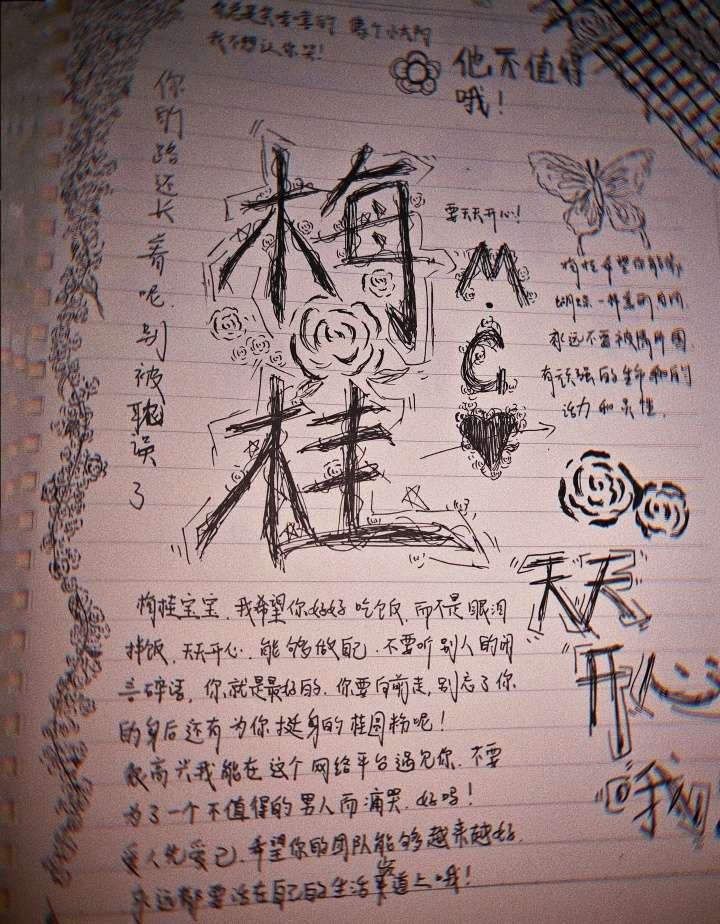 你总是笑嘻嘻的
我不想让你哭!
他不值得
哦!
你的路还长着呢,别被耽误了
梅桂
要天天开心!
M.G
梅桂希望你能像
蝴蝶一样
永远不要被情所困
有顽强的生命和
活力和灵性.
天天
开心
哦
梅桂宝宝,我希望你好好吃饭,而不是眼泪
拌饭,天天开心,能够做自己.不要听别人的闲
言碎语,你就是最好的,你要向前走,别忘了你
的身后还有为你挺身的桂圆粉呢!
很高兴我能在这个网络平台遇见你.不要
为了一个不值得的男人而痛哭.好吗!
爱人先爱己.希望你的团队能够越来越好.
永远都要活在自己的生活道上哦!